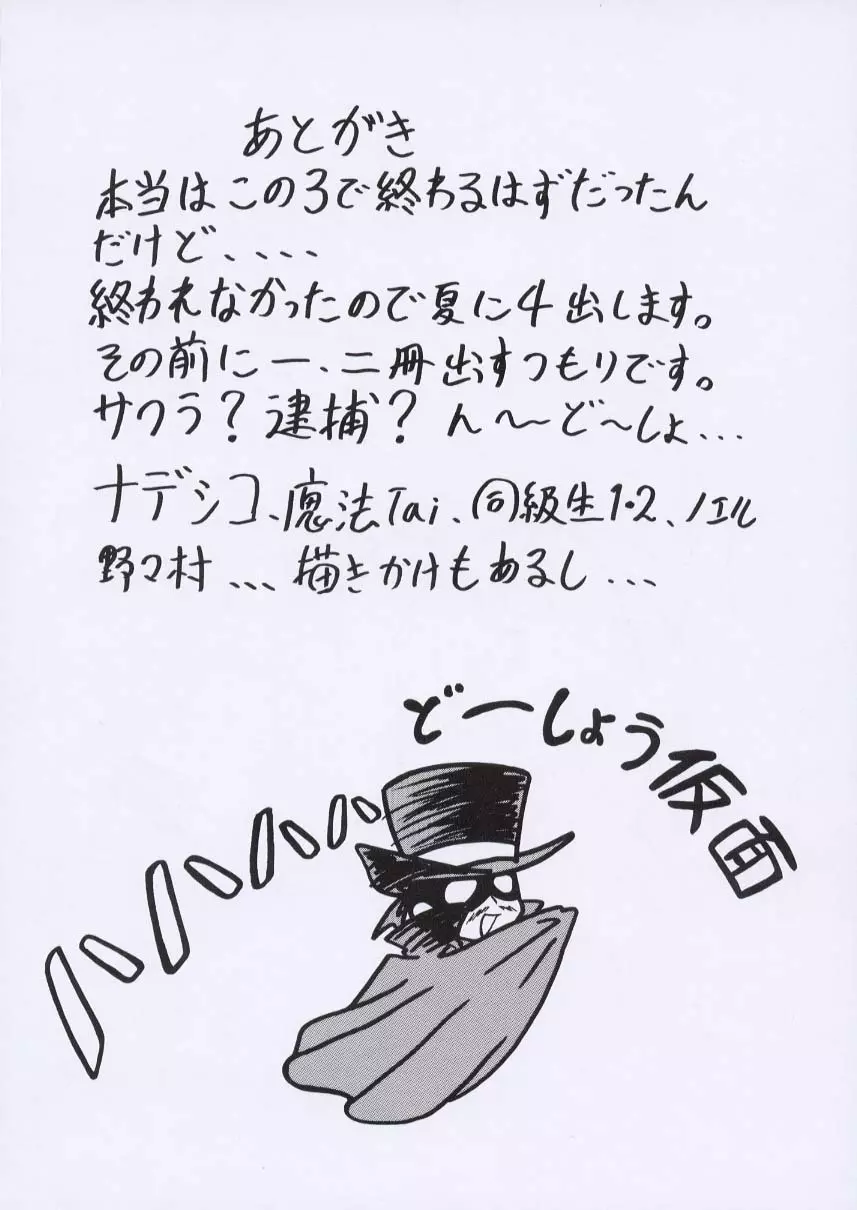 あとがき
本当はこの3で終わるはずだったん
だけど、、、、
終われなかったので夏に4出します。
その前に一、二冊出すつもりです。
サクラ？逮捕？ん〜ど〜しょ...
ナデシコ、魔法Tai、同級生1・2、ノエル
野々村、、、描きかけもあるし...
どーしょう仮面
ハハハハ